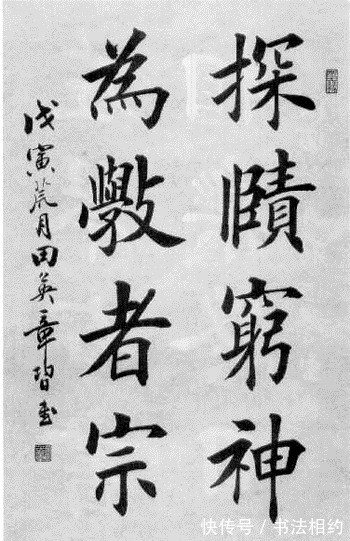 探賾窮神
為斆者宗
戊寅月田英章書
快传号/书法相约